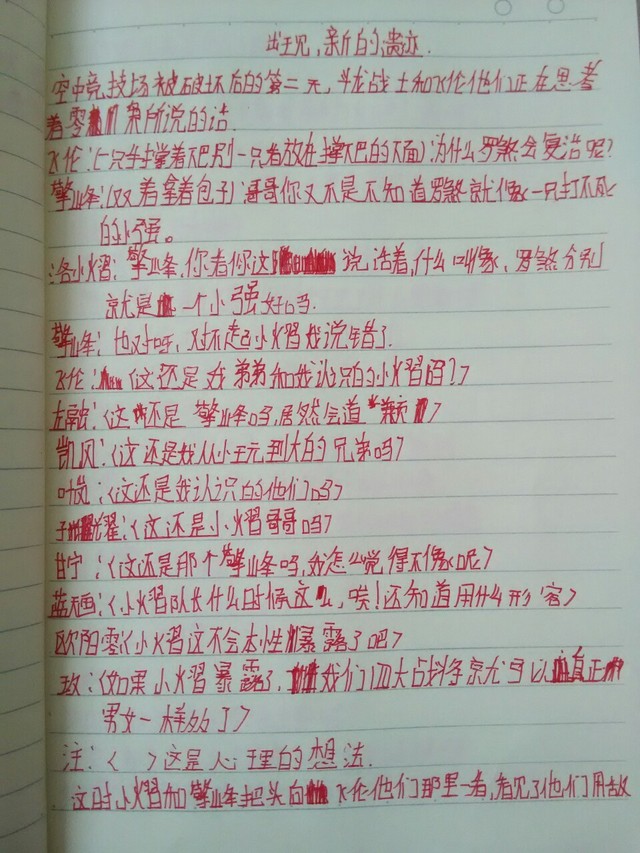 出现,新的遗迹.
空中竞技场被破坏后的第二天,斗龙战士和飞伦他们正在思考
着零所说的话.
飞伦:(一只手撑着下巴别一只着放在撑下巴的下面)为什么罗煞会复活呢?
擎峰:(双着拿着包子)哥哥你又不是不知道罗煞就像一只打不死
的小强。
洛小熠:擎峰,你看你这说话着,什么叫像、罗煞分别
就是一个小强好吗.
擎峰:也对呀,对不起小熠我说错了.
飞伦:〈这还是我弟弟和我认识的小熠吗?〉
〈这还是擎峰吗,居然会道〉
凯风:〈这还是我从小玩到大的兄弟吗〉
〈这还是我认识的他们吗〉
子耀:〈这还是小熠哥哥吗〉
甘宁:〈这还是那个擎峰吗,我怎么觉得不像呢〉
蓝天画:〈小熠队长什么时候这么,唉!还知道用什么形容〉
欧阳零〈小熠这不会本性暴露了吧〉
〈如果小熠暴露了,我们四大战将
男女一样
注:〈 〉这是心理的想法.
这时小熠和擎峰把头向飞伦他们那里一看,看见了他们用敌